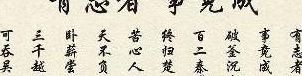 有志者 事竟成
有志者
事竟成
破釜沉
百二秦
终归楚
苦心人
天不负
卧薪尝
三千越
可吞吴